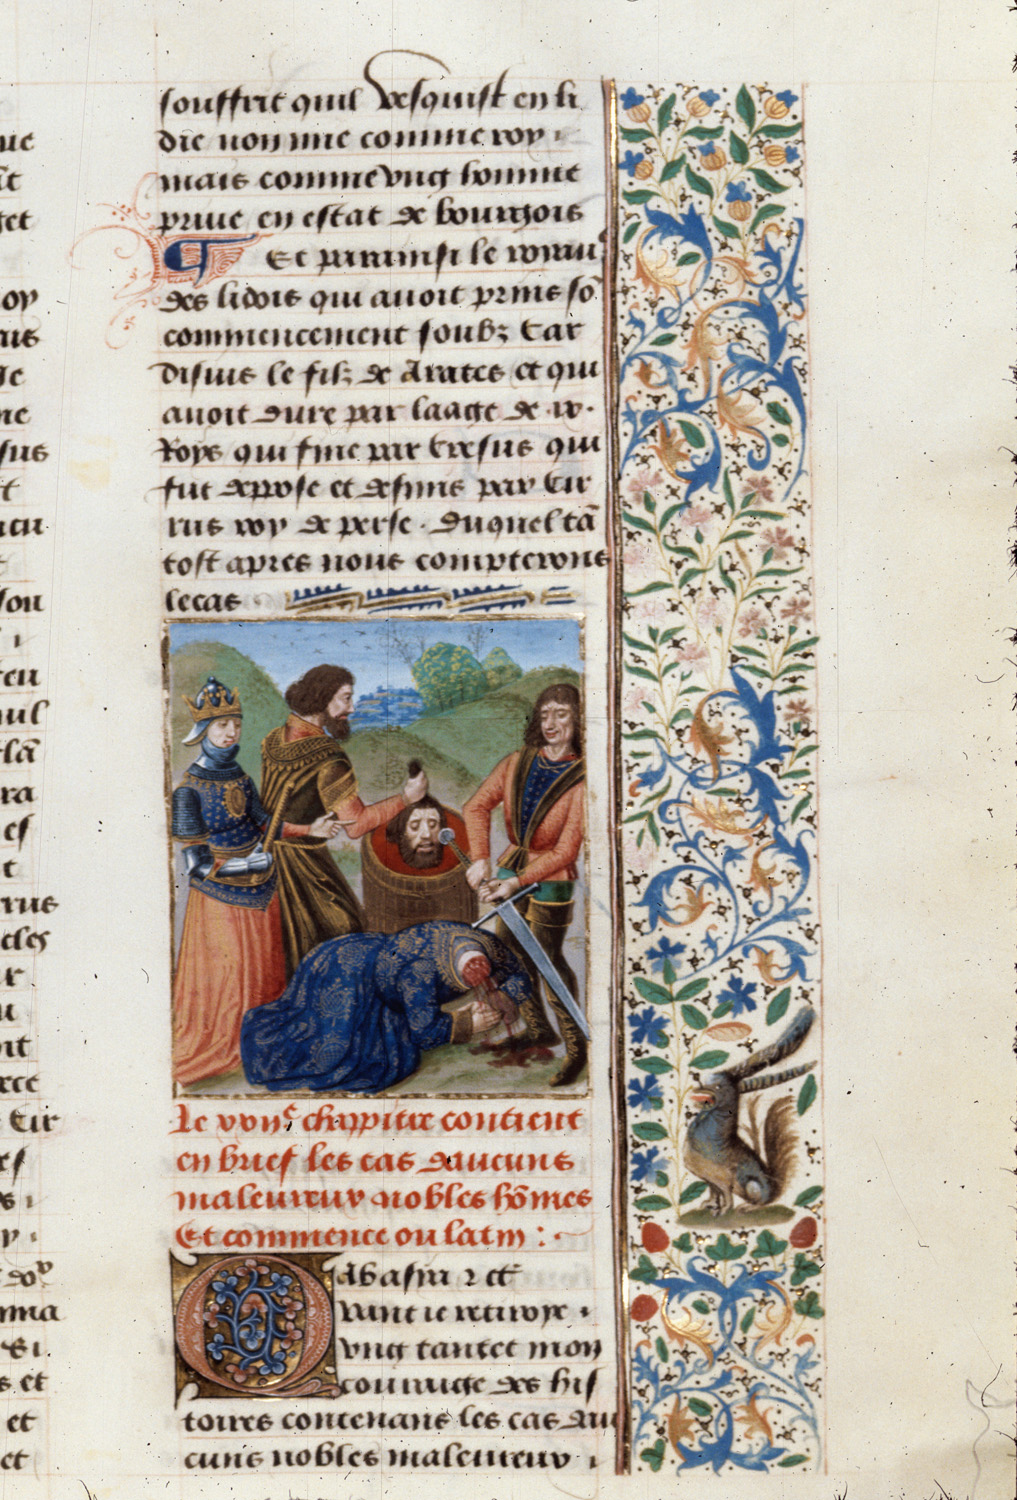 ue
et
oy
ais
ne
sus
son
teu
la
ra
es
rus
cles
ur
Cir
ma
et
et
et
souffrit quil vesquist en li
die non mie comme roy
mais comme vng homme
priue en estat de bourgois
Et par ainsi le royau
des lidois qui auoit prins so
commencement soubz Car
disius le filz de Arates et qui
auoit dure par laage de
Roys qui fine par Cresus qui
fut depose et desmis par Cir
rus roy de perse. Duquel tā
tost apres nous compterons
le cas
Le chappitre contient
en brief les cas daucuns
maleureux nobles hōmes
Et commence ou latin :
vant ie retiroye
vng tantet mon
couraige des his
toires contenans les cas dau
cuns nobles maleureux